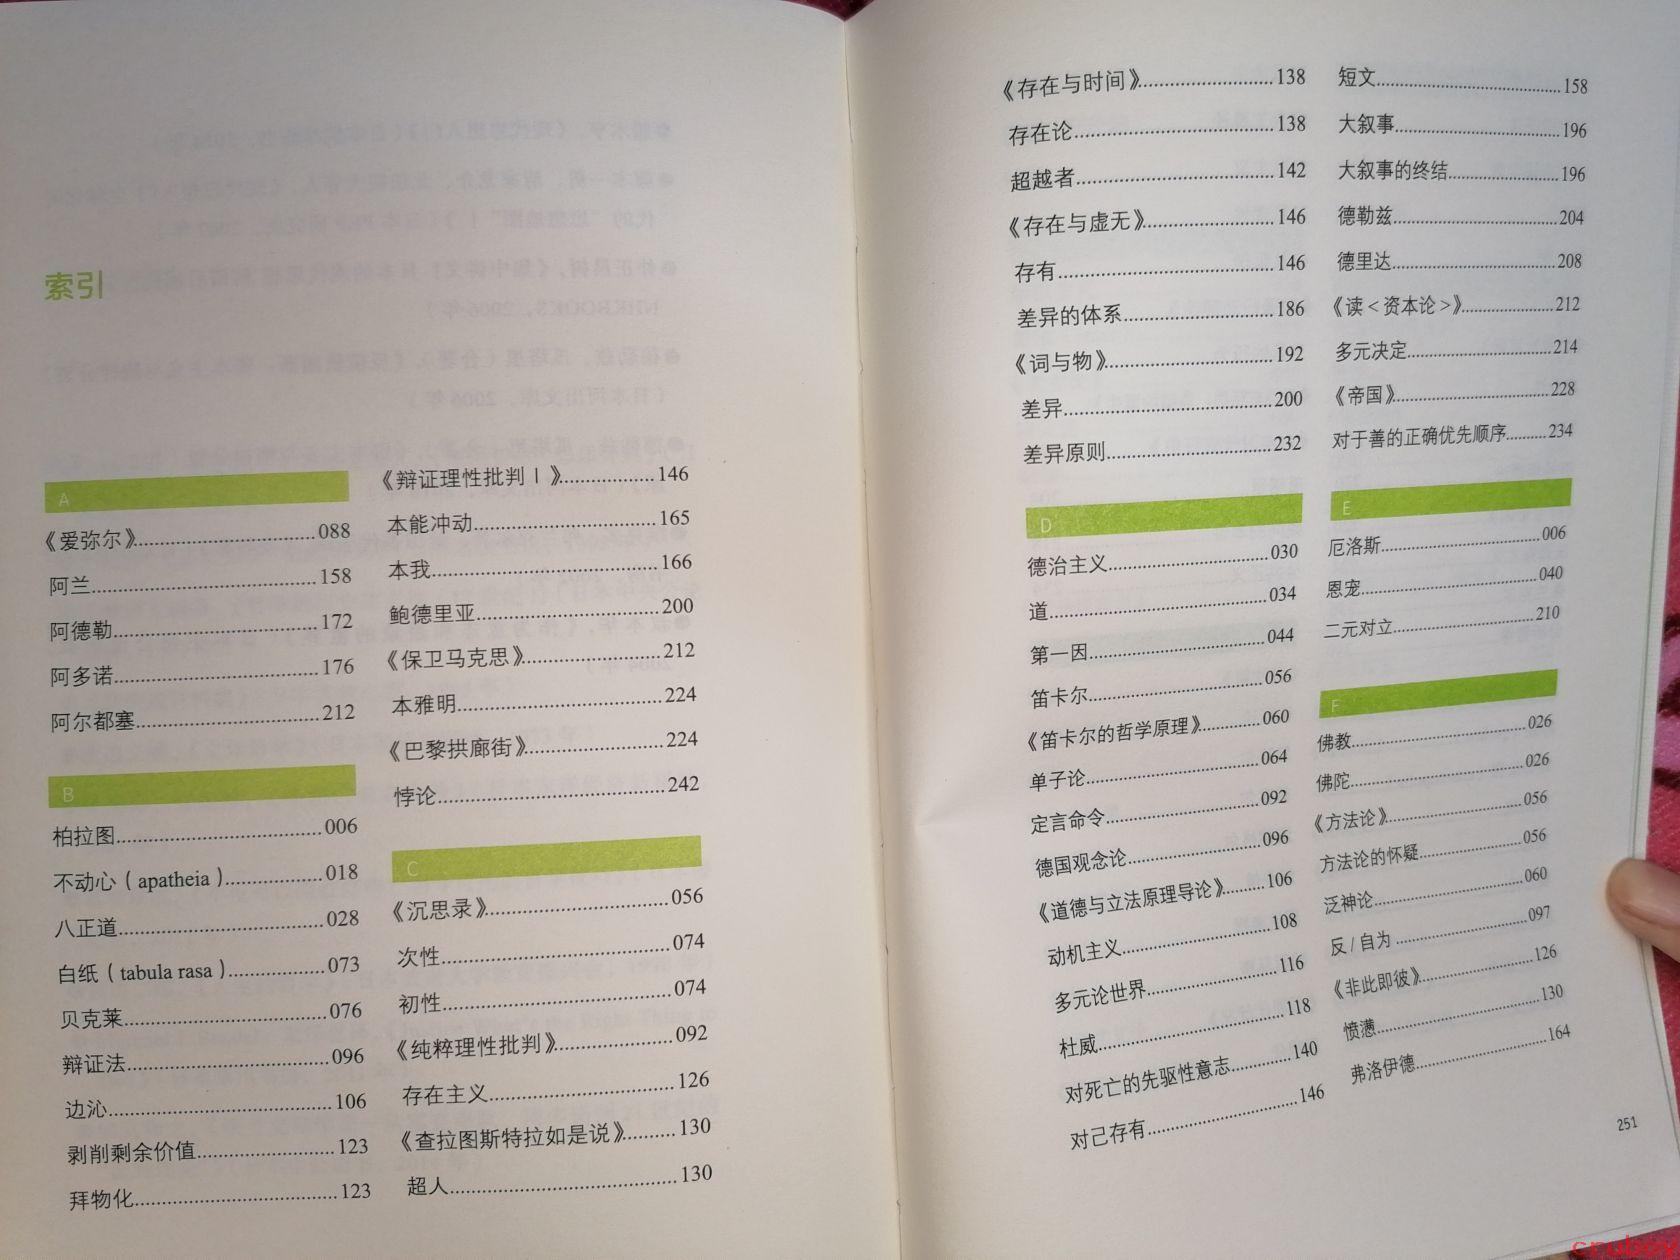 索引
A
《爱弥尔》........088
阿兰........158
阿德勒........172
阿多诺........176
阿尔都塞........212
B
柏拉图........006
不动心（apatheia）........018
八正道........028
白纸（tabula rasa）........073
贝克莱........076
辩证法........096
边沁........106
剥削剩余价值........123
拜物化........123
《辩证理性批判Ⅰ》........146
本能冲动........165
本我........166
鲍德里亚........200
《保卫马克思》........212
本雅明........224
《巴黎拱廊街》........224
悖论........242
C
《沉思录》........056
次性........074
初性........074
《纯粹理性批判》........092
存在主义........126
《查拉图斯特拉如是说》........130
超人........130
《存在与时间》........138
存在论........138
超越者........142
《存在与虚无》........146
存有........146
差异的体系........186
《词与物》........192
差异........200
差异原则........232
D
德治主义........030
道........034
第一因........044
笛卡尔........056
《笛卡尔的哲学原理》........060
单子论........064
定言命令........092
德国观念论........096
《道德与立法原理导论》........106
动机主义........108
多元论世界........116
杜威........118
对死亡的先驱性意志........140
对己存有........146
短文........158
大叙事........196
大叙事的终结........196
德勒兹........204
德里达........208
《读<资本论>》........212
多元决定........214
《帝国》........228
对于善的正确优先顺序........234
E
厄洛斯........006
恩宠........040
二元对立........210
F
佛教........026
佛陀........026
《方法论》........056
方法论的怀疑........056
泛神论........060
反/自为........097
《非此即彼》........126
愤懑........130
弗洛伊德........164
251